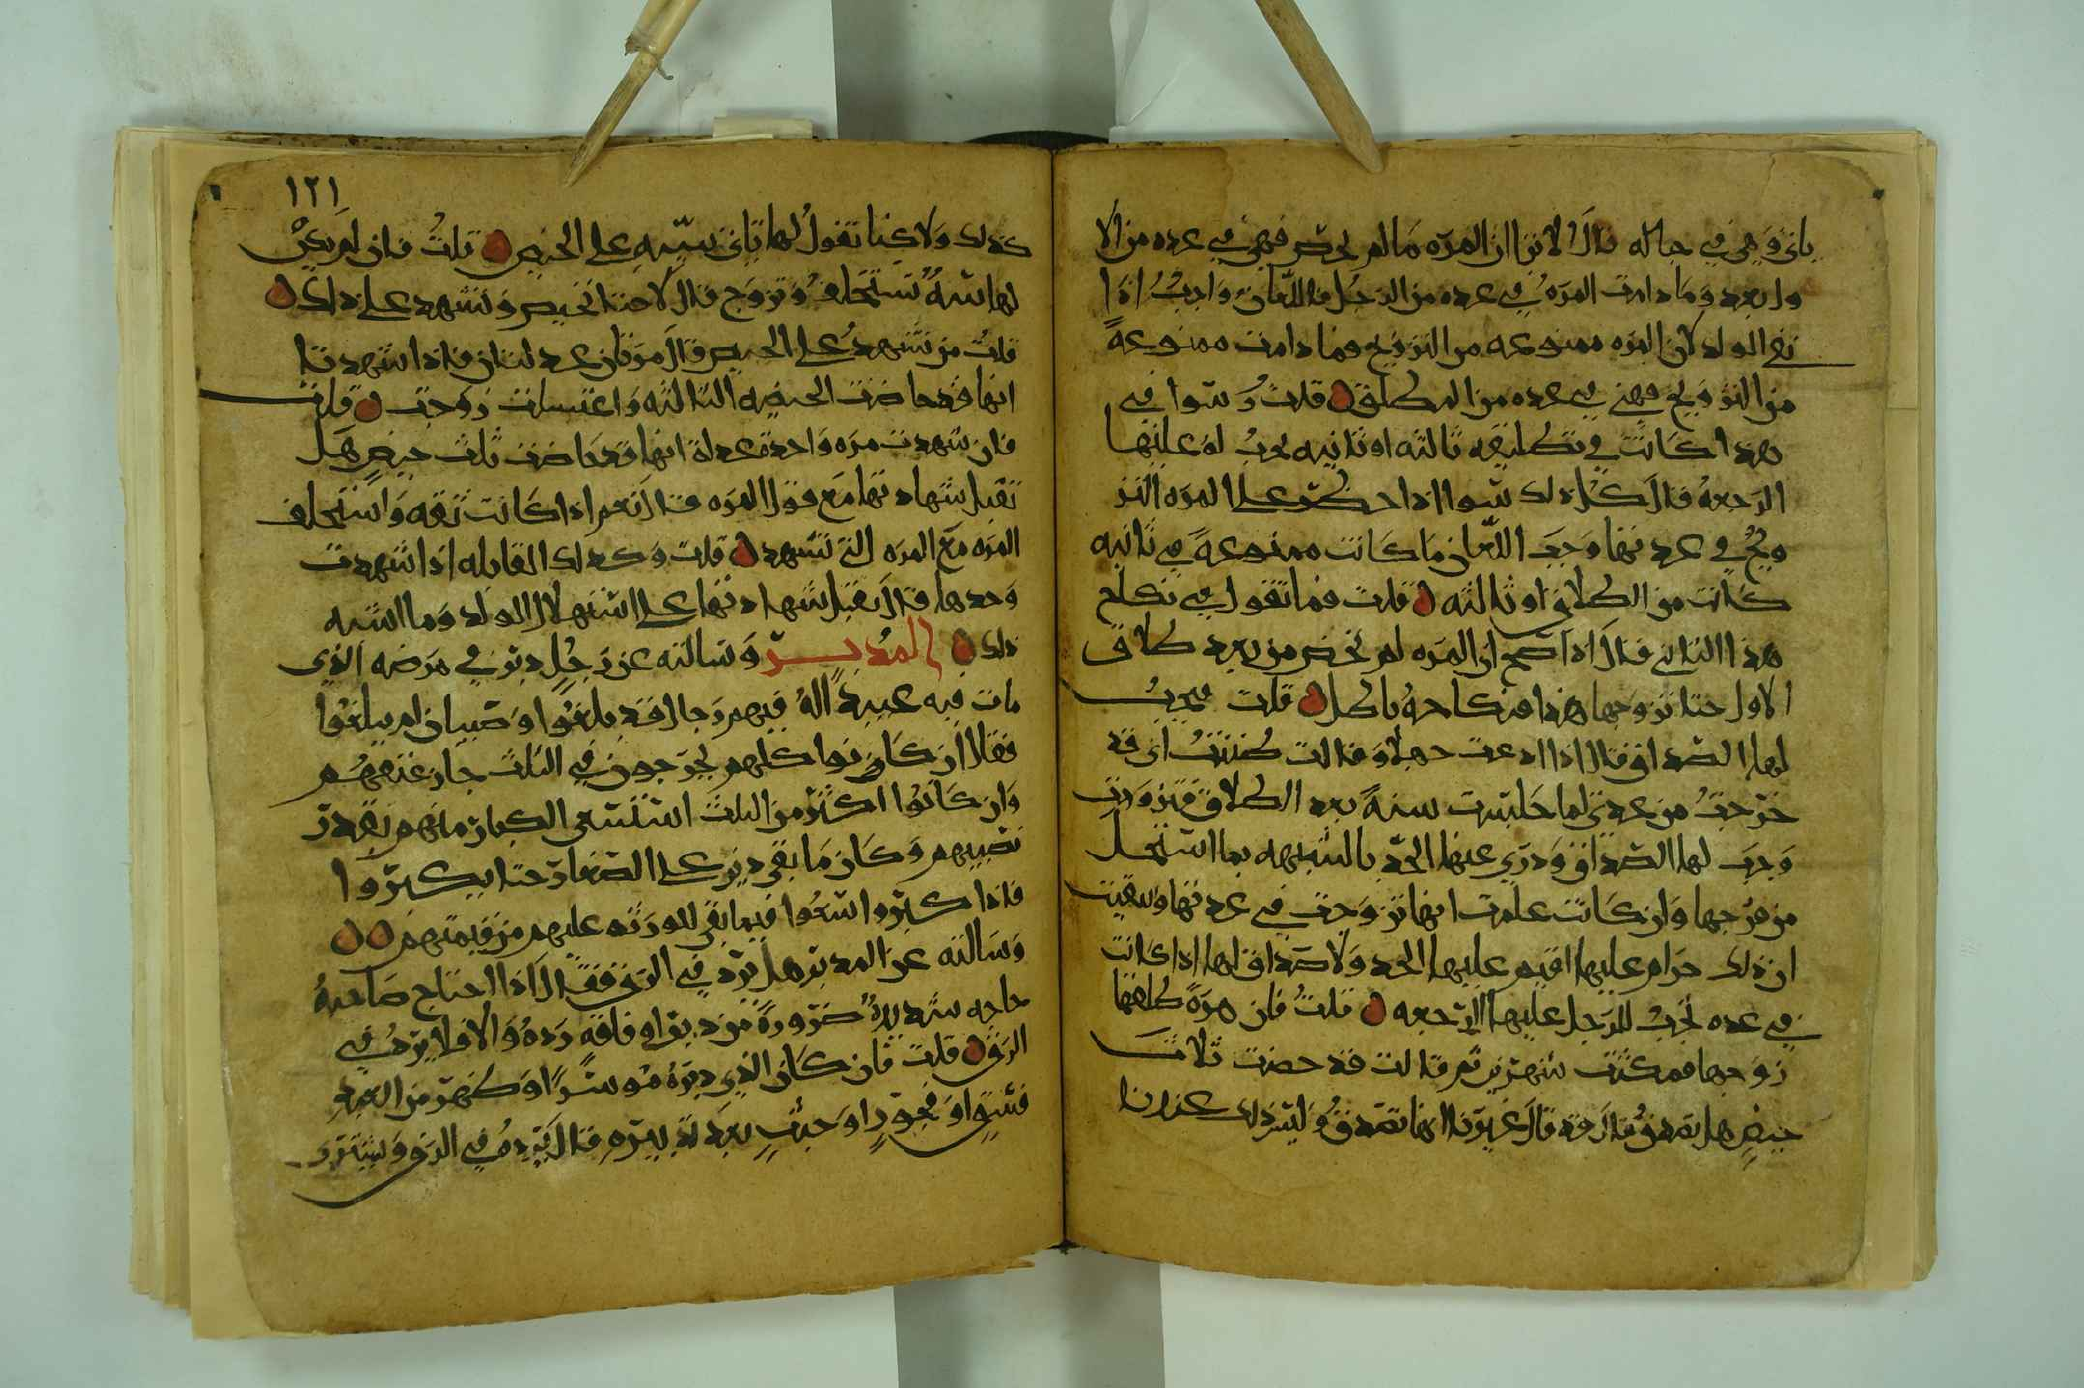 باين وهي في حاله قال لانا ان المره ما لم تحض فهي في عده من الا
ول بعد وما دامت المره في عده من الرجل فاللعان واجب اذا
نفى الولد لان المره ممنوعه من التزويج فما دامت ممنوعة
من التزويج فهي في عده من المطلق قلت وسوا في
هذا كانت في تطليقه ثالثه او ثانيه يجب له عليها
الرجعة قال كل ذلك سوا اذا حظر على المره التز
ويج في عدتها وجب اللعان ما كانت ممنوعة في ثانيه
كانت من الطلاق او ثالثه قلت فما تقول في نكاح
هذا الثاني فقال اذا صح ان المره لم تحض من بعد طلاق
الاول حتا تزوجها هذا فنكاحه باطل قلت فيجب
لها الصداق فقال اذا ادعت جهلا وقالت ظننت انى قد
خرجت من عدتي لما جلست سنة بعد الطلاق فتزوجت
وجب لها الصداق ودرى عنها الحد بالشبهه بما استحل
من فرجها وان كانت علمت انها تزوجت في عدتها وايقنت
ان ذلك حرام عليها اقيم عليها الحد ولا صداق لها اذا كانت
في عده تجب للرجل عليها الرجعه قلت فان مرة طلقها
زوجها فمكثت شهرين ثم قالت قد حضت ثلاث
حيض هل تصدق قال قد قال غيرنا انها تصدق وليس ذلك عندنا
١٢١
كذلك ولاكنا نقول لها تاتي ببينه على الحيض قلت فان لم يكن
لها بينة تستحلف وتزوج قال لا حتا تحيض وتشهد على ذلك
قلت من تشهد على الحيض قال مرتان عدلتان فاذا شهدتا
انها قد حاضت الحيضه الثالثه واغتسلت زوجت قلت
فان شهدت مره واحدة عدلة انها قد حاضت ثلث حيض هل
تقبل شهادتها مع قول المره قال نعم اذا كانت ثقه واستحلف
المره مع المره التي تشهد قلت وكذلك القابله اذا شهدت
وحدها قال تقبل شهادتها على استهلال الولد وما اشبه
ذلك المدبر وسالته عن رجل دبر في مرضه الذي
مات فيه عبيدا له فيهم رجال قد بلغوا وصبيان لم يبلغوا
فقال ان كانوا كلهم يخرجون في الثلث جاز عتقهم
وان كانوا اكثر من الثلث استسعى الكبار منهم بقدر
نصيبهم وكان ما بقي دين على الصغار حتا يكبروا
فاذا كبروا استعوا فيما بقي للورثه عليهم من قيمتهم
وسالته عن المدبر هل يرد في الرق فقال اذا احتاج صاحبه
حاجه شديدة ضرورة من دين او فاقه رده والا فلا يرد في
الرق قلت فان كان الذي دبره موسرا وظهر من العبد
فسق او فجور او خبث بعد تدبيره قال يرده في الرق ويشترى